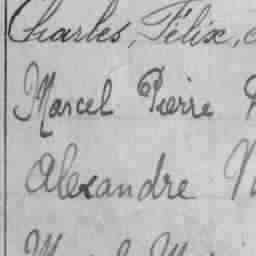 Charles, Félix,
Marcel Pierre
Alexandre